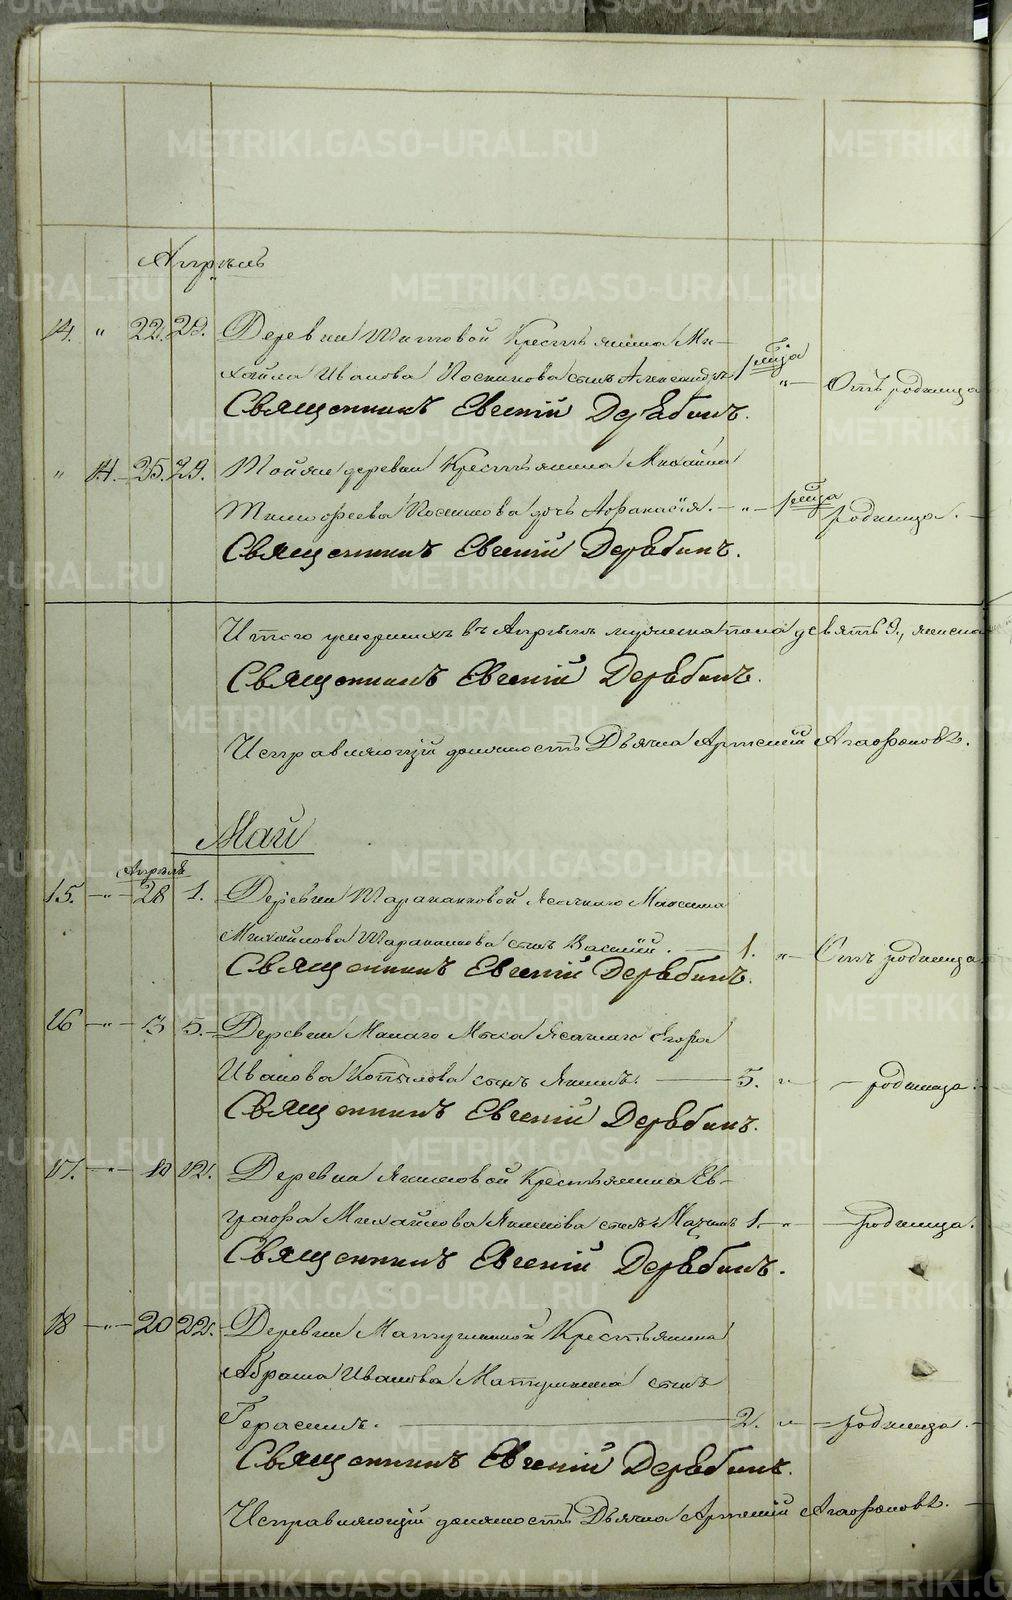 Апрѣль
14. " 22. 29. Деревни Титовой Крестьянина Ми-
хайла Иванова сынъ Александръ 1 " Отъ родимца
Священникъ Евгеній Дерябинъ.
" 14. 25. 29. Той же деревни Крестьянина Михаила
Тимофеева дочь Афанасія. " родимца.
Священникъ Евгеній Дерябинъ.
Итого умершихъ въ Апрѣлѣ мужеска пола девять 9., женска
Священникъ Евгеній Дерябинъ.
Исправляющій должность Дьячка Артемій Агафоновъ.
Май
Апрѣля
15. " 28 1. Деревни Тараканковой Ясачнаго Максима
Михайлова Тараканкова сынъ Василій. 1. " Отъ родимца
Священникъ Евгеній Дерябинъ.
16 " 3 5. Деревни Малаго Мыса Ясачнаго Егора
Иванова Копылова сынъ Якимъ. 5. " родимца.
Священникъ Евгеній Дерябинъ.
17. " 10 12. Деревни Якимовой Крестьянина Ев-
графа Михайлова Якимова сынъ 1. " родимца.
Священникъ Евгеній Дерябинъ.
18 " 20 22. Деревни Матушкиной Крестьянина
Абрама Иванова Матушкина сынъ
Герасимъ. 2. " родимца.
Священникъ Евгеній Дерябинъ.
Исправляющій должность Дьячка Артемій Агафоновъ.
METRIKI.GASO-URAL.RU